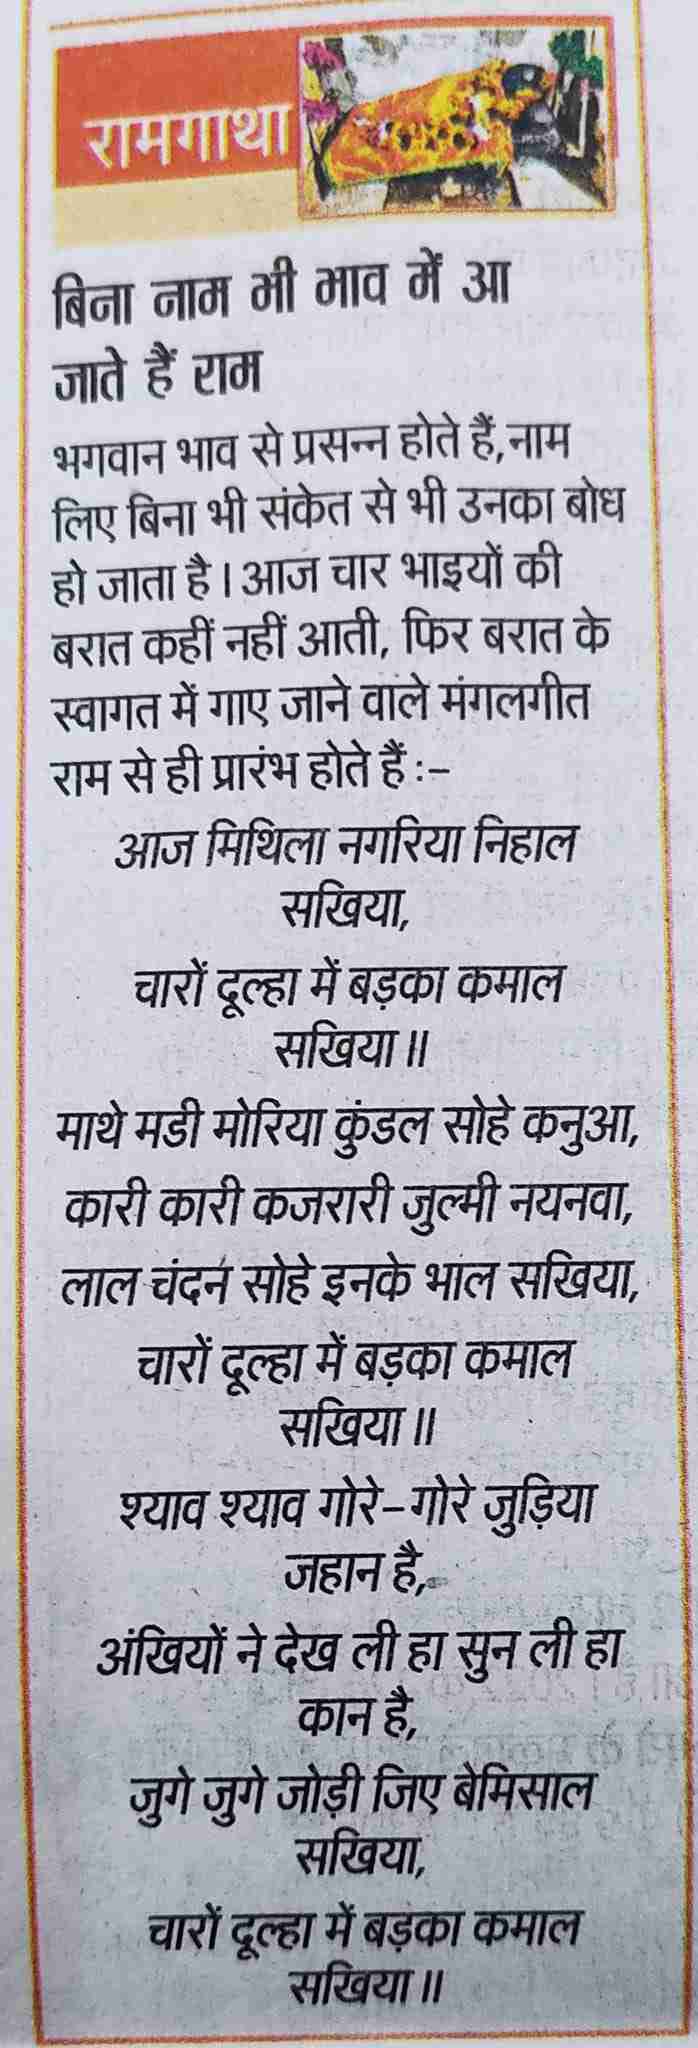 रामगाथा
बिना नाम भी भाव में आ
जाते हैं राम
भगवान भाव से प्रसन्न होते हैं,नाम
लिए बिना भी संकेत से भी उनका बोध
हो जाता है। आज चार भाइयों की
बरात कहीं नहीं आती, फिर बरात के
स्वागत में गाए जाने वाले मंगलगीत
राम से ही प्रारंभ होते हैं :-
आज मिथिला नगरिया निहाल
सखिया,
चारों दूल्हा में बड़का कमाल
सखिया॥
माथे मडी मोरिया कुंडल सोहे कनुआ,
कारी कारी कजरारी जुल्मी नयनवा,
लाल चंदन सोहे इनके भाल सखिया,
चारों दूल्हा में बड़का कमाल
सखिया॥
श्याव श्याव गोरे-गोरे जुड़िया
जहान है,
अंखियों ने देख ली हा सुन ली हा
कान है,
जुगे जुगे जोड़ी जिए बेमिसाल
सखिया,
चारों दूल्हा में बड़का कमाल
सखिया॥